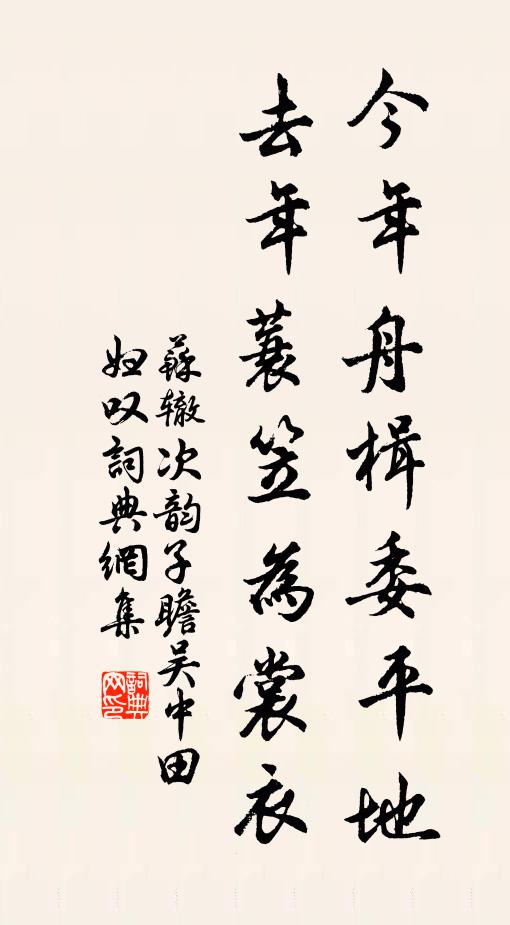 今年舟楫委平地
去年蓑笠為裳衣
蘇辙次韵子瞻吴中田
妇叹詞典網集
詞典
网印